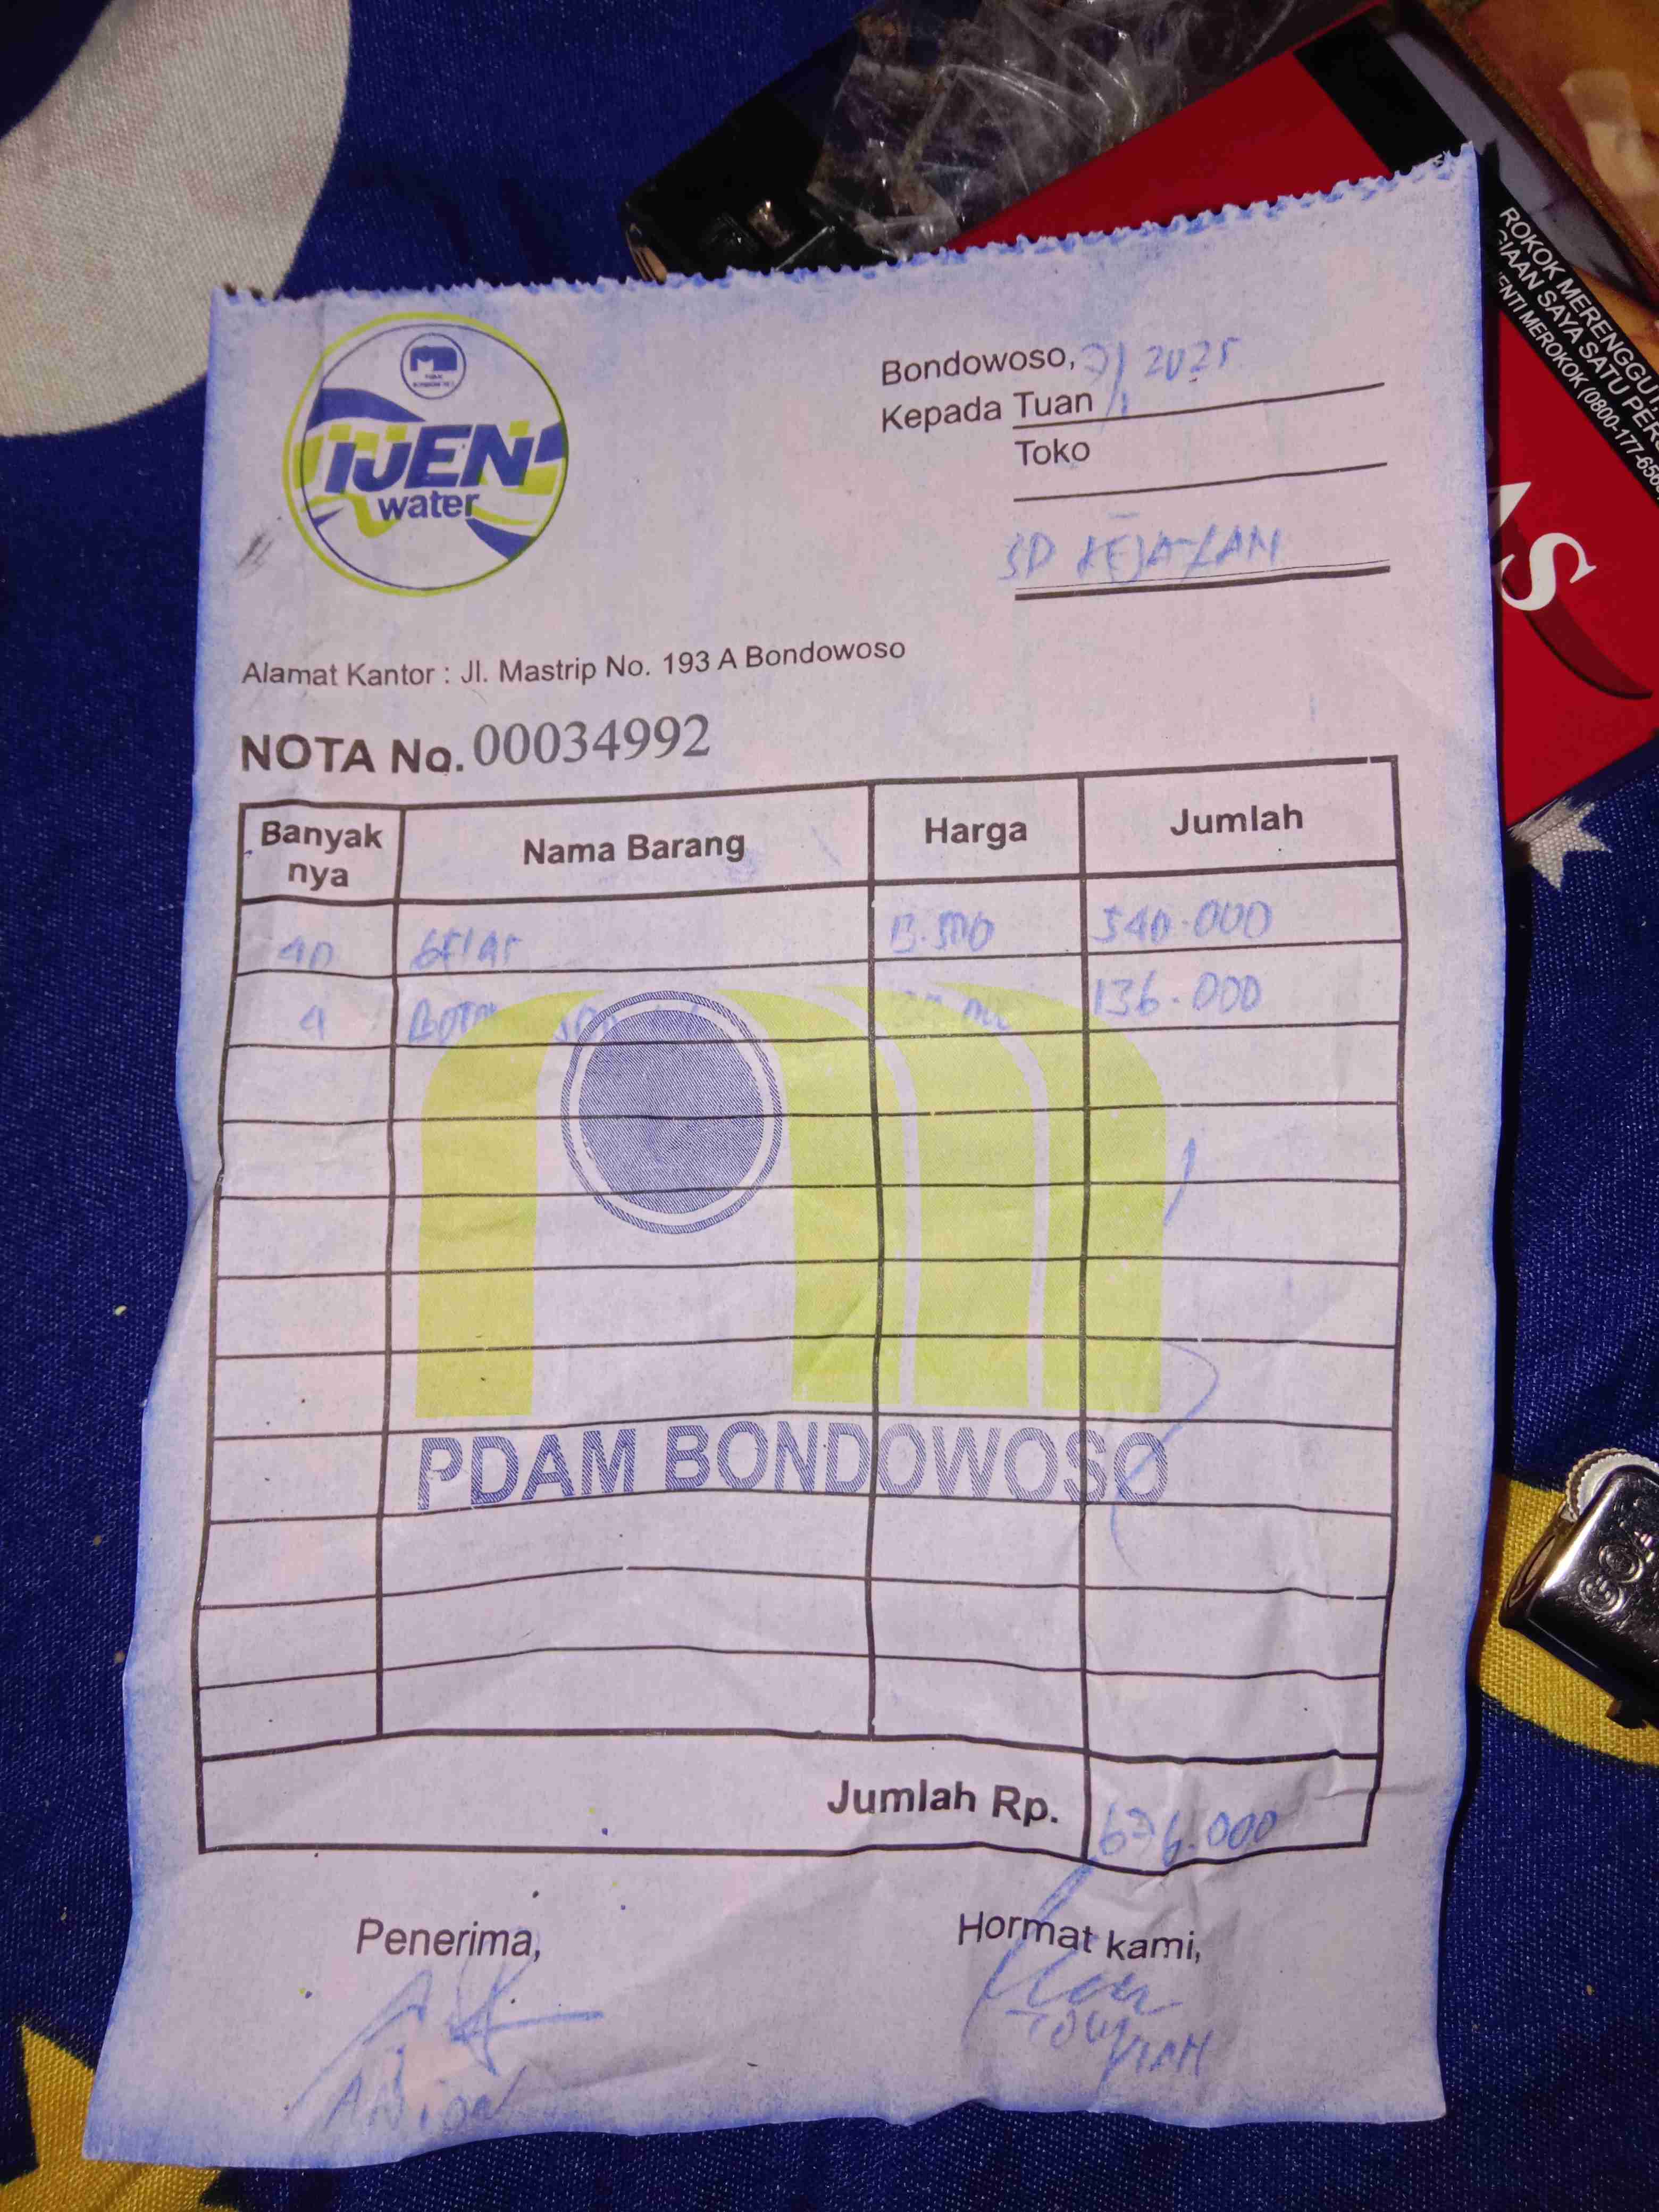 IJEN
water
Bondowoso, 2025
Kepada Tuan
Toko
SD KEJAYAN
Alamat Kantor : Jl. Mastrip No. 193 A Bondowoso
NOTA No. 00034992
Banyak nya Nama Barang Harga Jumlah
40 GELAS 13.500 540.000
4 136.000
PDAM BONDOWOSO
Jumlah Rp. 676.000
Penerima, Hormat kami,
ROKOK MERENGGUT
SAYA SATU
MEROKOK (0800-177-
AS